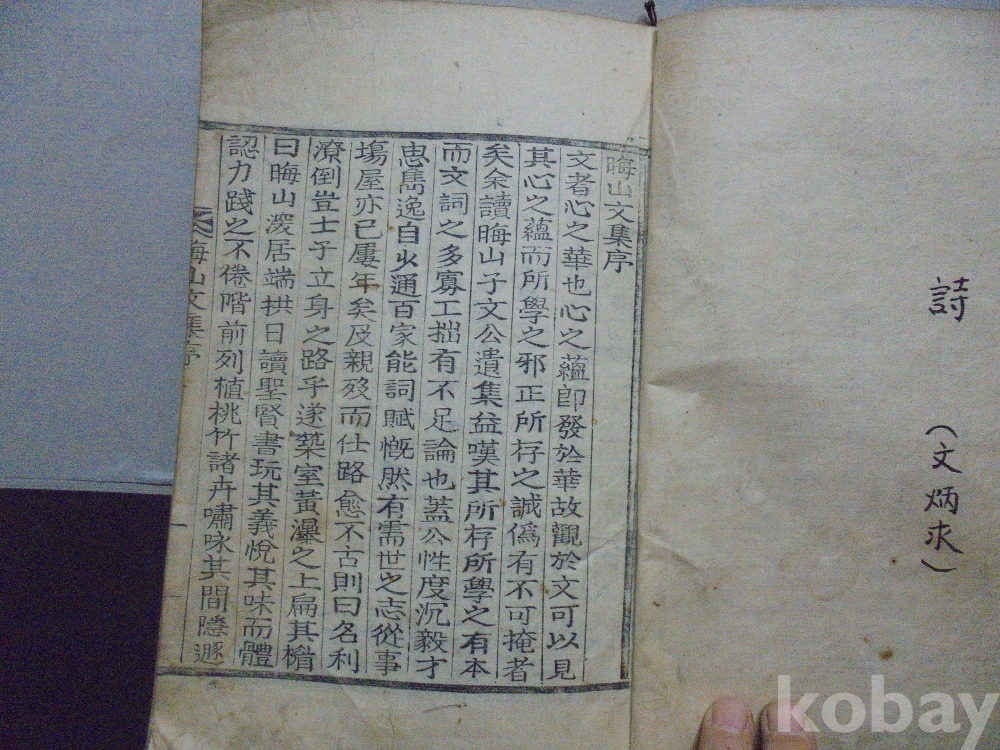 詩
（文炳求）
晦山文集序
文者心之華也心之蘊即發於華故觀於文可以見
其心之蘊而所學之邪正所存之誠僞有不可掩者
矣余讀晦山子文公遺集益嘆其所存所學之有本
而文詞之多寡工拙有不足論也蓋公性度沉毅才
思雋逸自少通百家能詞賦慨然有需世之志從事
場屋亦已屢年矣及親歿而仕路愈不古則曰名利
潦倒豈士子立身之路乎遂築室黃瀑之上扁其楣
曰晦山漤居端拱日讀聖賢書玩其義悅其味而體
認力踐之不倦階前列植桃竹諸卉嘯咏其間隱遯
晦山文集序
kobay